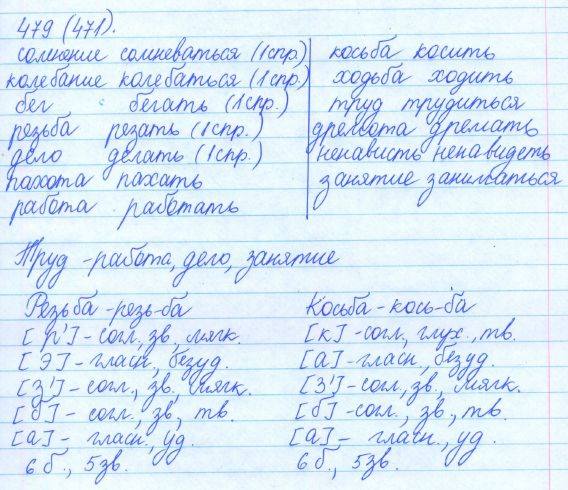 479 (471).
сомнение сомневаться (1спр.)
колебание колебаться (1спр.)
бег бегать (1спр.)
резьба резать (1спр.)
дело делать (1спр.)
пахота пахать
работа работать
косьба косить
ходьба ходить
труд трудиться
дремота дремать
ненависть ненавидеть
занятие заниматься
Труд - работа, дело, занятие
Резьба - резь-ба
[р'] - согл., зв., мягк.
[э] - гласн., безуд.
[з'] - согл., зв., мягк.
[б] - согл., зв., тв.
[а] - гласн., уд.
6 б., 5зв.
Косьба - кось-ба
[к] - согл., глух., тв.
[а] - гласн., безуд.
[з'] - согл., зв., мягк.
[б] - согл., зв., тв.
[а] - гласн., уд.
6 б., 5зв.